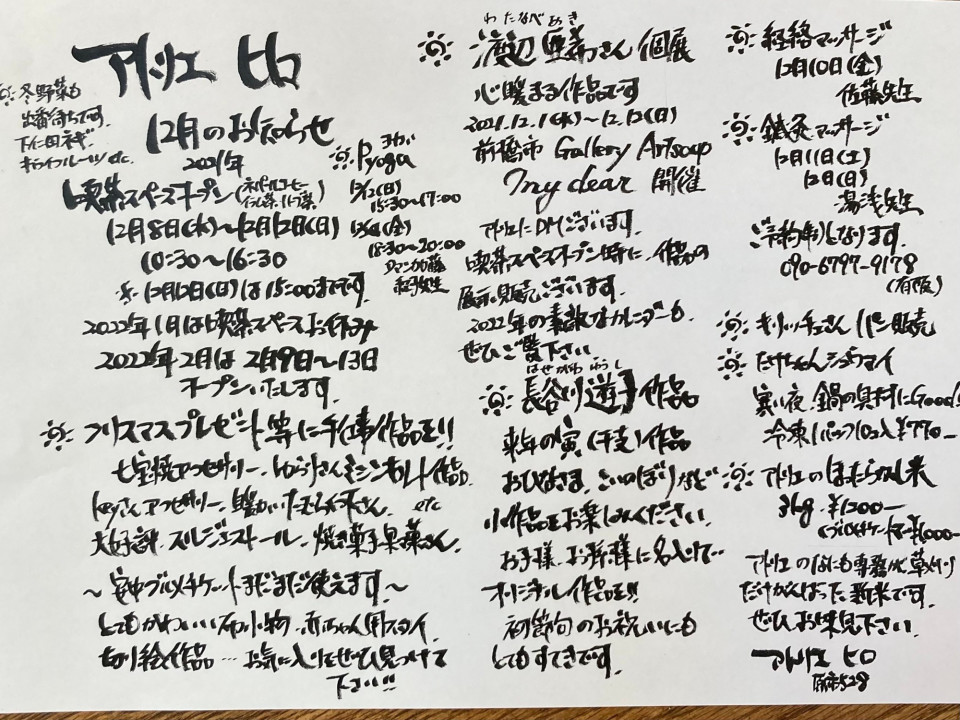 アトリエ ヒロ
冬野菜も
出番待ちです
下仁田ネギ
キャベツ etc.
12月のお知らせ
2021年
喫茶スペースオープン
12月8日(水)〜12月12日(日)
10:30〜16:30
※ 12月12日(日)は15:00までです。
2022年1月は喫茶スペースお休み
2022年2月は 2月9日〜13日
オープンいたします。
ヨガ
Pyoga
12/12(日)
15:30〜17:00
(金)
18:30〜20:00
先生
クリスマスプレゼント等に手仕事作品を!!
七宝焼アクセサリー、ゆうりさんミシンキルト作品
アクセサリー、etc
大好評 スルジェストール、焼き菓子果菓さん、
〜安中プレミアムチケットまだまだ使えます。〜
とてもかわいい布小物、赤ちゃん用スタイ、
切り絵作品…お気に入りをぜひ見つけて
下さい!!
わたなべ めき
渡辺 さん 個展
心暖まる作品です
2021.12.1(水)〜12.12(日)
前橋市 Gallery Artsoup
my dear 開催
アトリエにDMございます。
喫茶スペースオープン時に、作品の
展示、販売ございます。
2022年の素敵なカレンダーも、
ぜひご覧下さい
はせがわ ゆうし
長谷川 遊子作品
来年の寅(干支)作品
おひなさま、こいのぼりなど
小作品をお楽しみください。
お子様、お孫様に名入れで…
オリジナル作品を!!
初節句のお祝いにも
とてもすてきです。
経絡マッサージ
12月10日(金)
佐藤先生
鍼灸マッサージ
12月11日(土)
12日(日)
湯浅先生
ご予約制となります。
090-6797-9178
(有阪)
キリッチュさん パン販売
たけちゃんシュウマイ
寒い夜、鍋の具材にGood!!
冷凍1パック10コ入 ¥770-
アトリエのはたらかし米
3kg ¥1200-
アトリエの
だけがんばった新米です。
ぜひ、お味見下さい。
アトリエ ヒロ
原市528